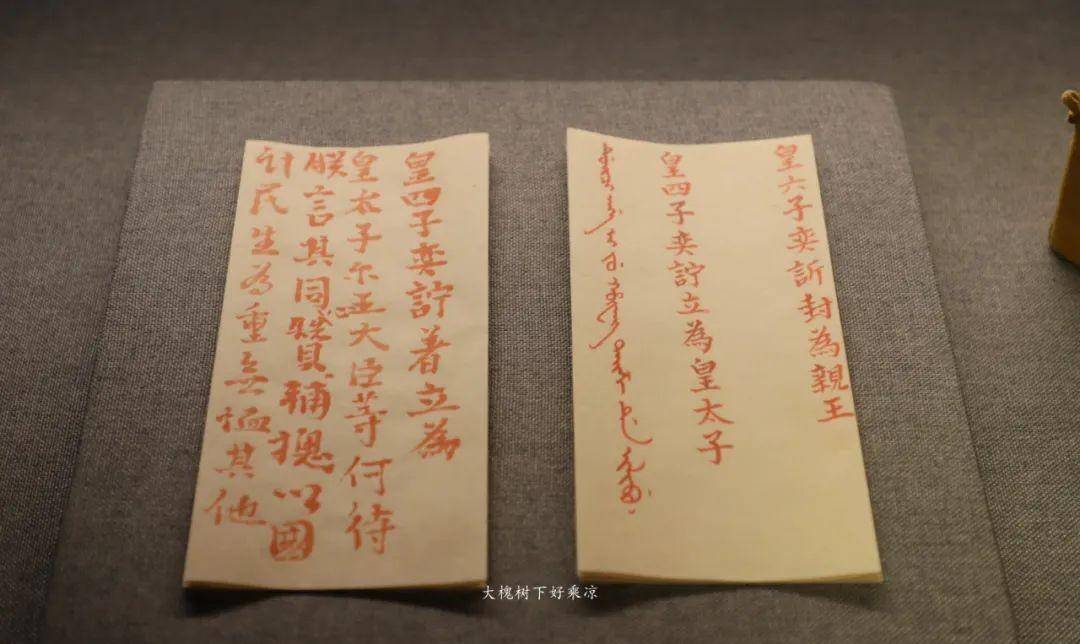 皇六子奕訢封為親王
皇四子奕詝立為皇太子
皇四子奕詝著立為
皇太子尔王大臣等何待
朕言其同心贊輔總以國
計民生為重無恤其他
大槐树下好乘凉